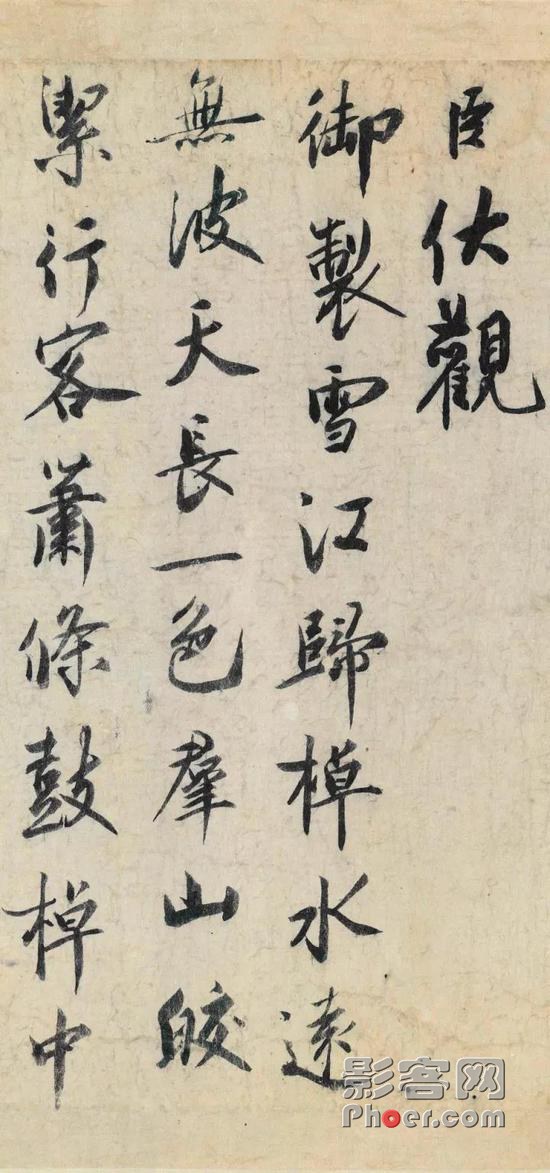 臣伏觀
御製雪江歸棹水遠
無波天長一色羣山皎
潔行客蕭條鼓棹中
影客网
Phoer.com